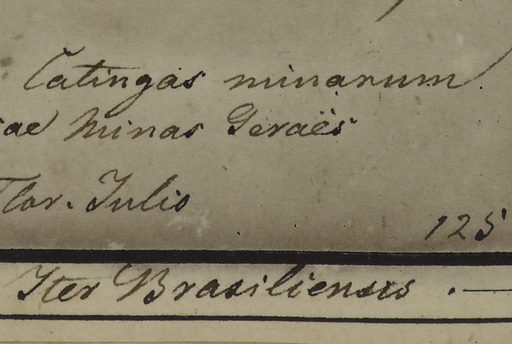 Catingas minarum.
ae Minas Geraës
Flor. Julio
125
Iter Brasiliensis . —